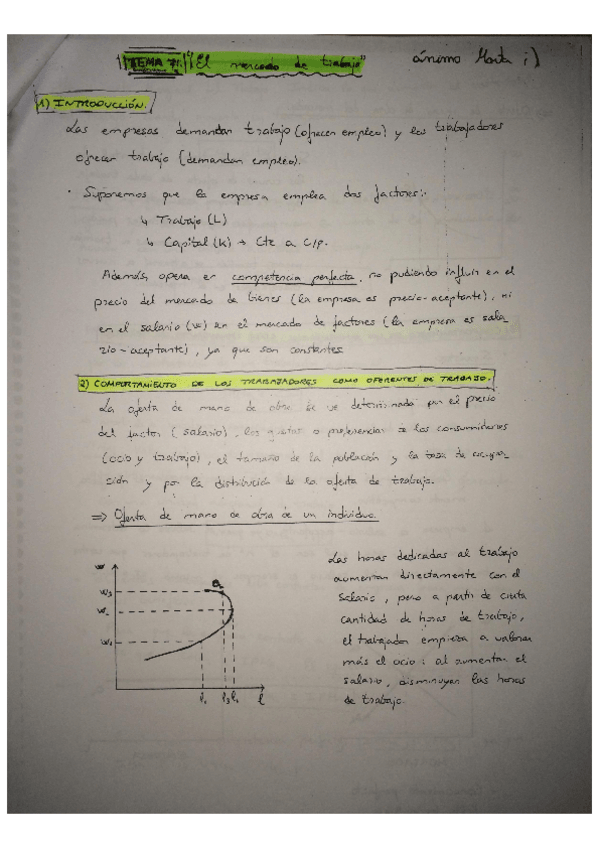 TEMA 7: "El mercado de trabajo" ánimo Marta :)
1) INTRODUCCIÓN.
Las empresas demandan trabajo (ofrecen empleo) y los trabajadores
ofrecen trabajo (demandan empleo).
· Suponemos que la empresa emplea dos factores:
↳ Trabajo (L)
↳ Capital (K) → Cte a c/p.
Además, opera en competencia perfecta, no pudiendo influir en el
precio del mercado de bienes (la empresa es precio-aceptante), ni
en el salario (w) en el mercado de factores (la empresa es sala
rio-aceptante), ya que son constantes
2) COMPORTAMIENTO DE LOS TRABAJADORES COMO OFERENTES DE TRABAJO.
La oferta de mano de obra se ve determinada por el precio
del factor (salario), los gustos o preferencias de los consumidores
(ocio y trabajo), el tamaño de la población y la tasa de ocupa-
ción y por la distribución de la oferta de trabajo.
⇒ Oferta de mano de obra de un individuo.
Las horas dedicadas al trabajo
aumentan directamente con el
salario, pero a partir de cierta
cantidad de horas de trabajo,
el trabajador empieza a valorar
más el ocio: al aumentar el
salario, disminuyen las horas
de trabajo.
w
w₃
w₂
w₁
l₁ l₃ l₂ l